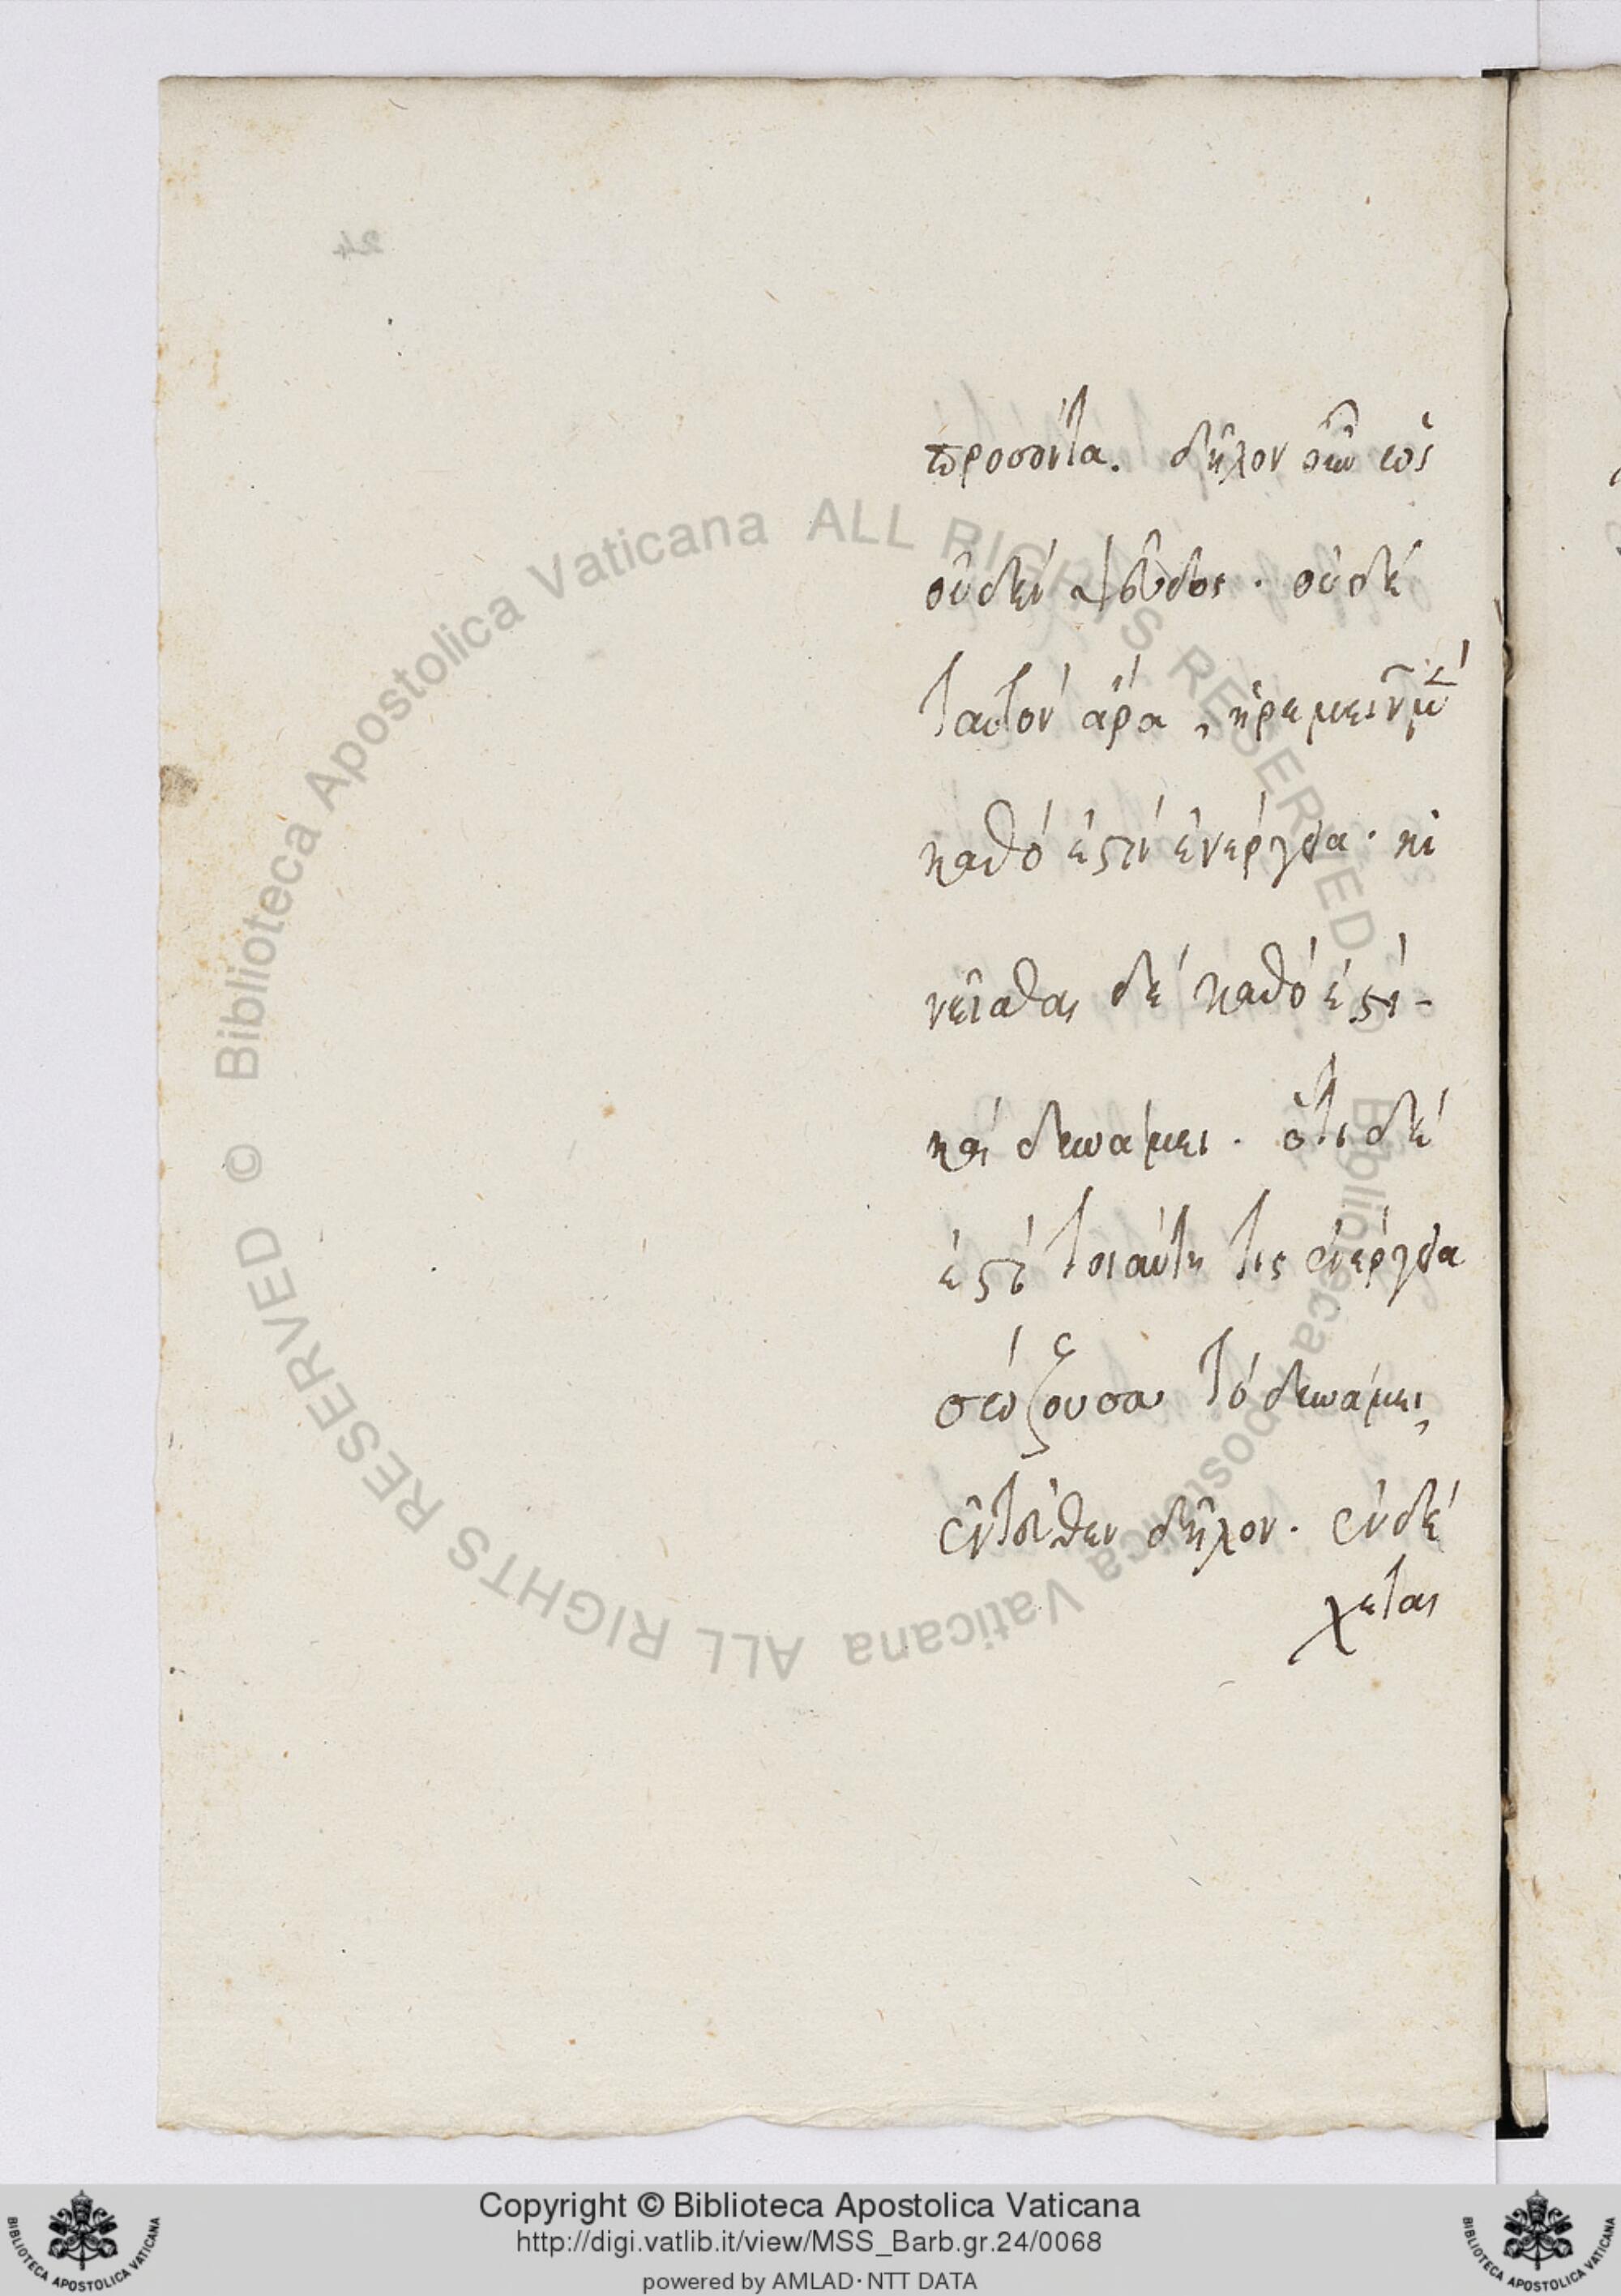 προσόντα. δῆλον οὖν ὡς
οὐδὲν ψεῦδος· οὐδὲ
ταυτὸν ἄρα, ἠρεμεῖν μὲν
καθό ἐστιν ἐνέργεια· κι
νεῖσθαι δὲ καθό ἐστι-
καὶ δυνάμει. ὅτι δὲ
ἐστὶ τοιαύτη τὶς ἐνέργεια
σώζουσα τὸ δυνάμει,
ἐντεῦθεν δῆλον. ἐνδέ
χεται
24
© Biblioteca Apostolica Vaticana ALL RIGHTS RESERVED © Biblioteca Apostolica Vaticana ALL RIGHTS RESERVED
Copyright © Biblioteca Apostolica Vaticana
http://digi.vatlib.it/view/MSS_Barb.gr.24/0068
powered by AMLAD · NTT DATA
BIBLIOTECA APOSTOLICA VATICANA
BIBLIOTECA APOSTOLICA VATICANA